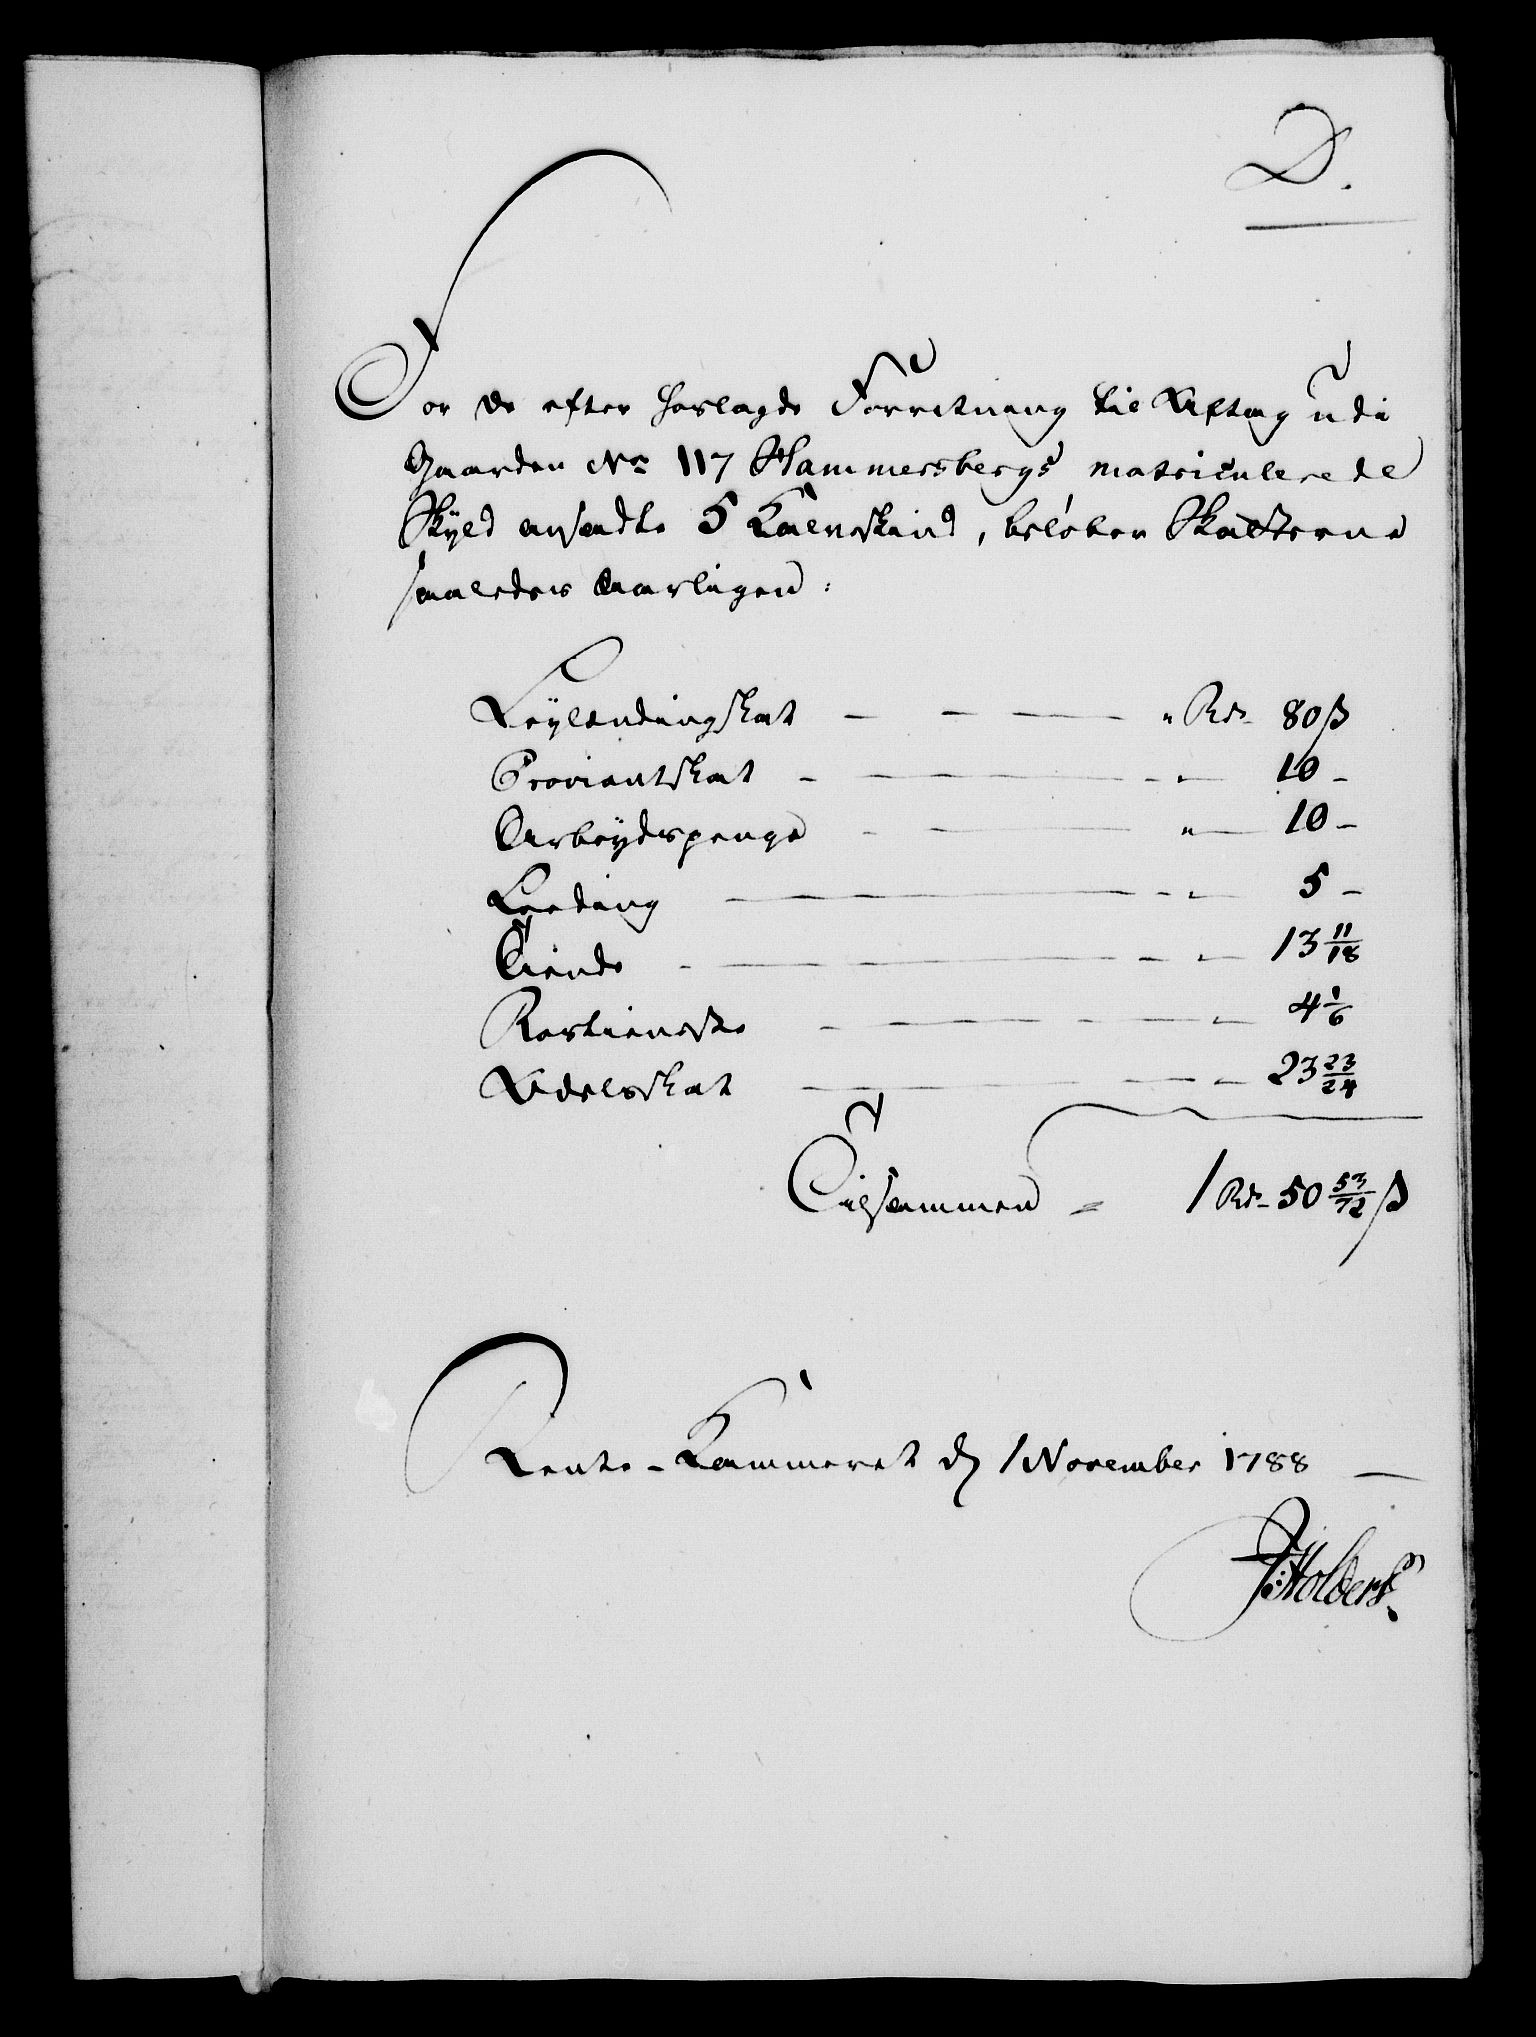 D.
For de efter horlagde Forretning til Aftag udi
Gaarden No 117 Hammersbergs matriculerede
Skyld ansadte 5 Kalvskind, beløber Skatterne
saaledes aarligen:
Leylendingskat — — — " Rdr 80 ß
Proviantskat - — — - " — 10 -
Arbeydspenge - — — " — 10 -
Leeding — — — - " — 5 -
Tiende - — — — - " — 13 11/18
Rostieneste - — — - — " — 4 1/6
Odelsskat — — — - — 23 23/24
Tilsammen = 1 Rdr 50 53/72 ß
Rente-Kammeret d. 1 November 1788 —
J: Holberf